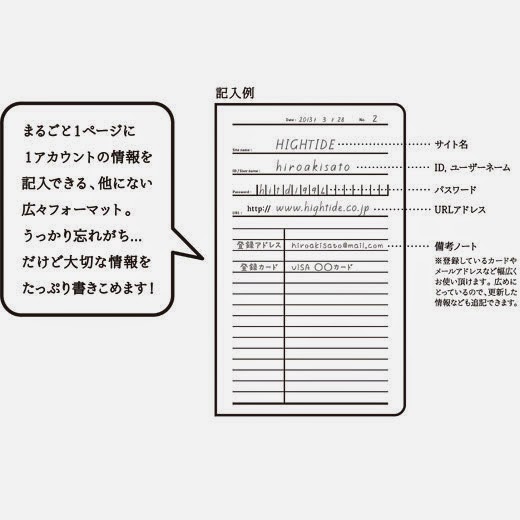 記入例
まるごと1ページに
1アカウントの情報を
記入できる、他にない
広々フォーマット。
うっかり忘れがち...
だけど大切な情報を
たっぷり書きこめます!
Date : 2013 / 3 / 28 No. 2
Site name : HIGHTIDE サイト名
ID / User name : hiroakisato ID, ユーザーネーム
Password : パスワード
URL : http:// www.hightide.co.jp URLアドレス
登録アドレス hiroakisato@mail.com 備考ノート
登録カード VISA 〇〇カード
※登録しているカードや
メールアドレスなど幅広く
お使い頂けます。広めに
とっているので、更新した
情報なども追記できます。